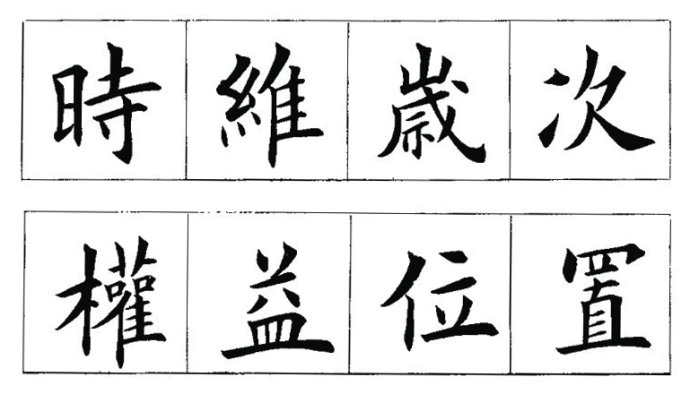 時維歲次
權益位置